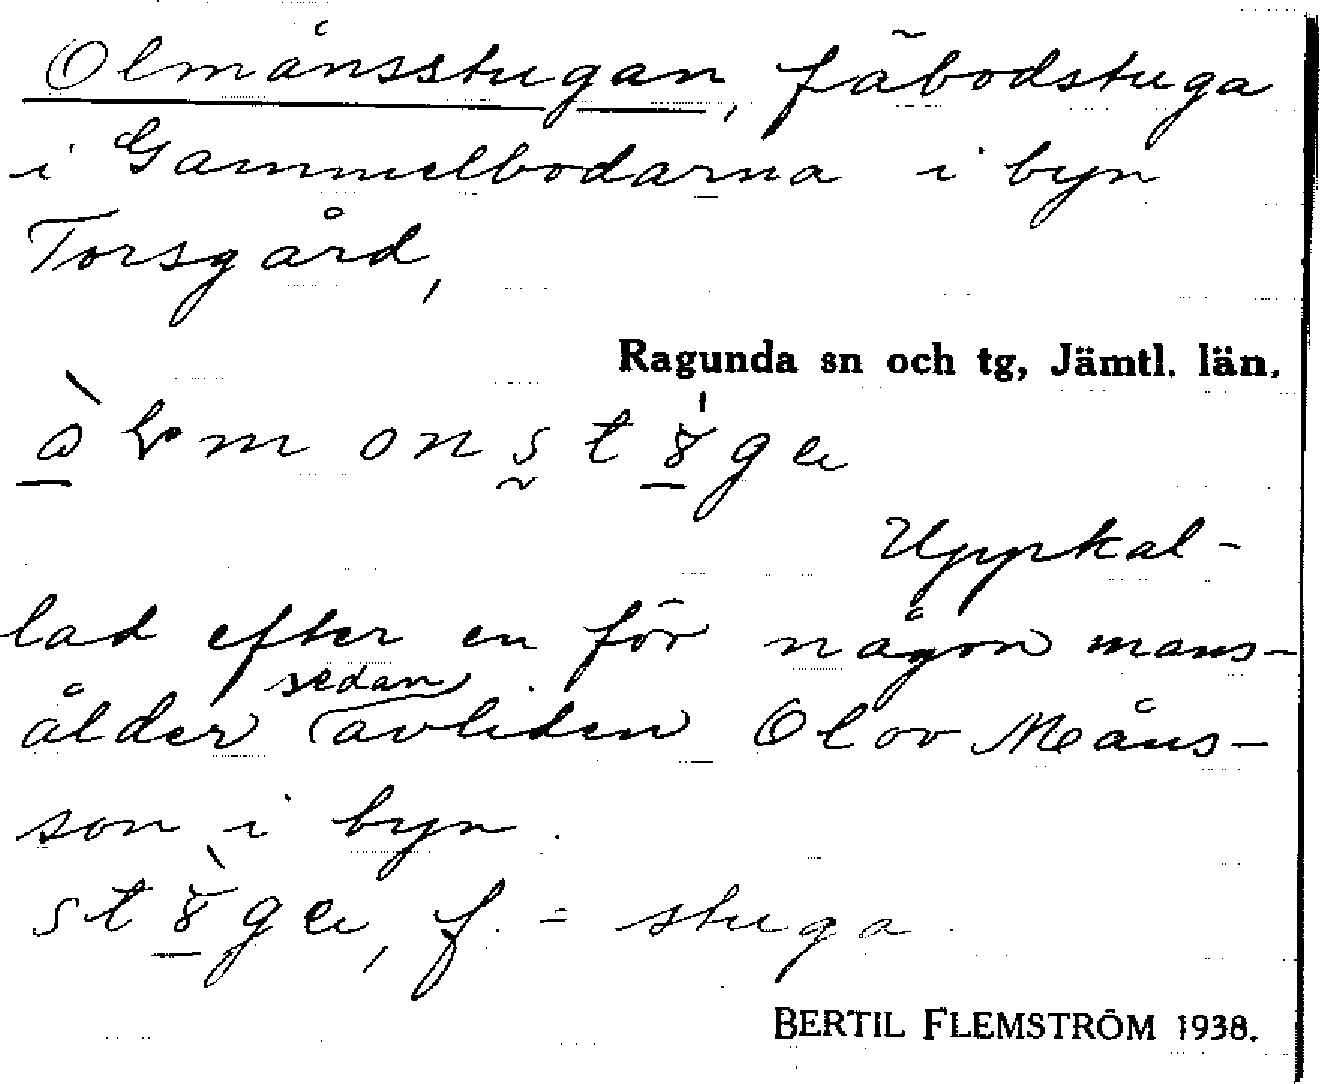 Olmånsstugan, fäbodstuga
i Gammelbodarna i byn
Torsgård,
Ragunda sn och tg, Jämtl. län.
Uppkal-
lad efter en för någon mans-
ålder sedan avliden Olov Måns-
son i byn.
f. = stuga.
BERTIL FLEMSTRÖM 1938.